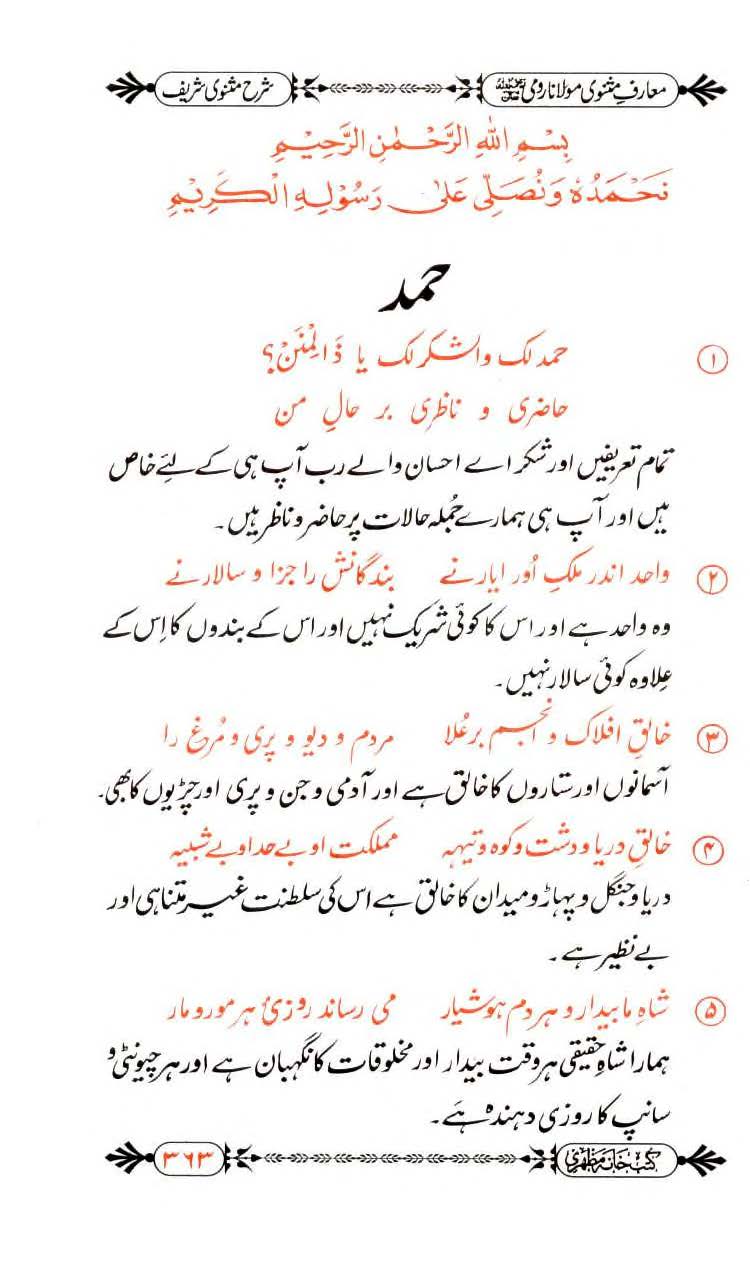 معارفِ مثنوی مولانا رومی رحمۃ اللہ تعالیٰ علیہ شرح مثنوی شریف
بِسْمِ اللهِ الرَّحْمٰنِ الرَّحِيْمِ
نَحْمَدُهٗ وَنُصَلِّيْ عَلٰى رَسُوْلِهِ الْكَرِيْمِ
حمد
۱ حمد لک والشکر لک یا ذَالْمِنَنْ؟
حاضری و ناظری بر حالِ من
تمام تعریفیں اور شکر اے احسان والے رب آپ ہی کے لئے خاص
ہیں اور آپ ہی ہمارے جُملہ حالات پر حاضر و ناظر ہیں۔
۲ واحد اندر ملکِ اُور ایارنے بندگانش را جزا و سالارنے
وہ واحد ہے اور اس کا کوئی شریک نہیں اور اس کے بندوں کا اِس کے
عِلاوہ کوئی سالار نہیں۔
۳ خالقِ افلاک و انجم برعُلا مردم و دیو و پری و مُرغ را
آسمانوں اور ستاروں کا خالق ہے اور آدمی و جن و پری اور چڑیوں کا بھی۔
۴ خالقِ دریا و دشت و کوہ و تیہہ مملکت او بے حد او بے شبیہ
دریا و جنگل و پہاڑ و میدان کا خالق ہے اس کی سلطنت غیر متناہی اور
بے نظیر ہے۔
۵ شاہِ ما بیدار و ہر دم ہوشیار می رساند روزیٔ ہر مور و مار
ہمارا شاہِ حقیقی ہر وقت بیدار اور مخلوقات کا نگہبان ہے اور ہر چیونٹی و
سانپ کا روزی دہندہ ہَے۔
کتب خانہ مظہری ۳۶۳